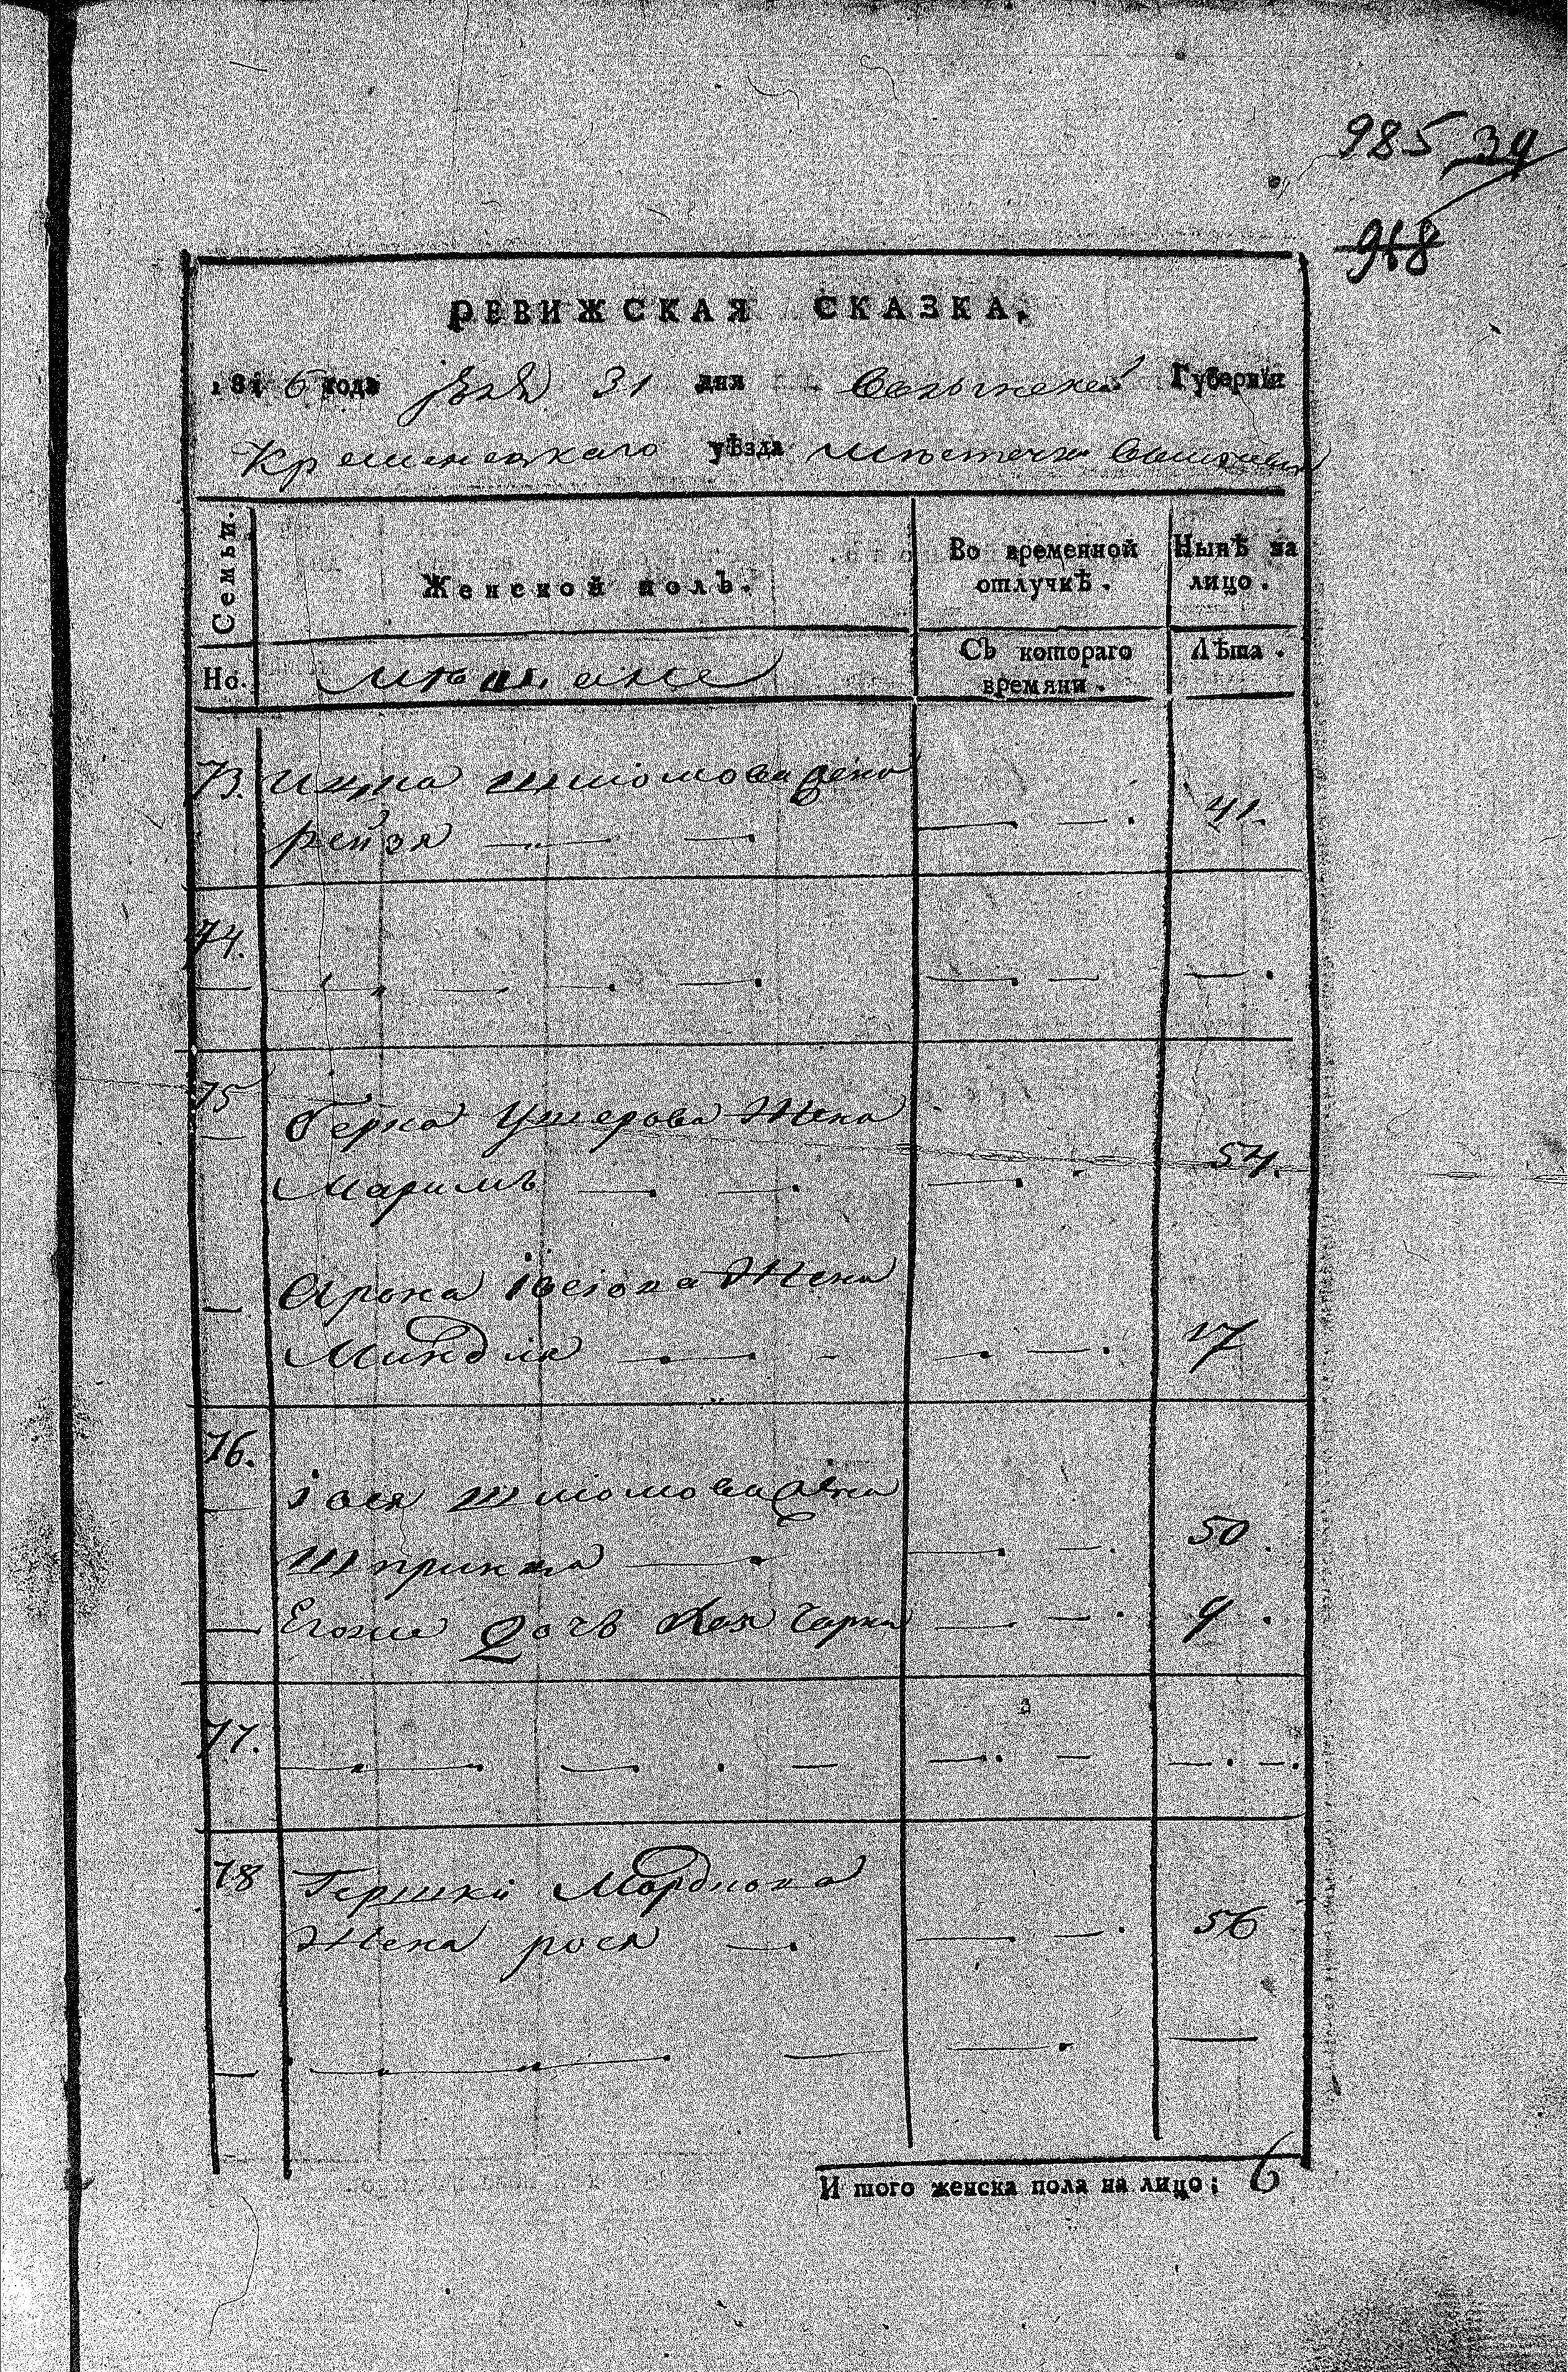 985 39
918
РЕВИЖСКАЯ СКАЗКА.
1816 года 31 дня Волынской Губернїи
Кременецкаго уѣзда местечка
Семьи.
Женской полъ.
Во временной отлучкѣ.
Нынѣ на лицо.
Но.
мещане
Съ котораго времяни.
Лѣта.
73. Ицка Шмiомова жена
рейзя 41.
74.
75 Берка Ушерова Жена
Маримъ 54.
Арона Жена
Миндля 17
76.
іося Шмiомова жена
Шпринца 50.
Егоже Дочь Хая Сарка 9.
77.
78 Гершки Мордкова
Жена рося 56
И того женска пола на лицо; 6